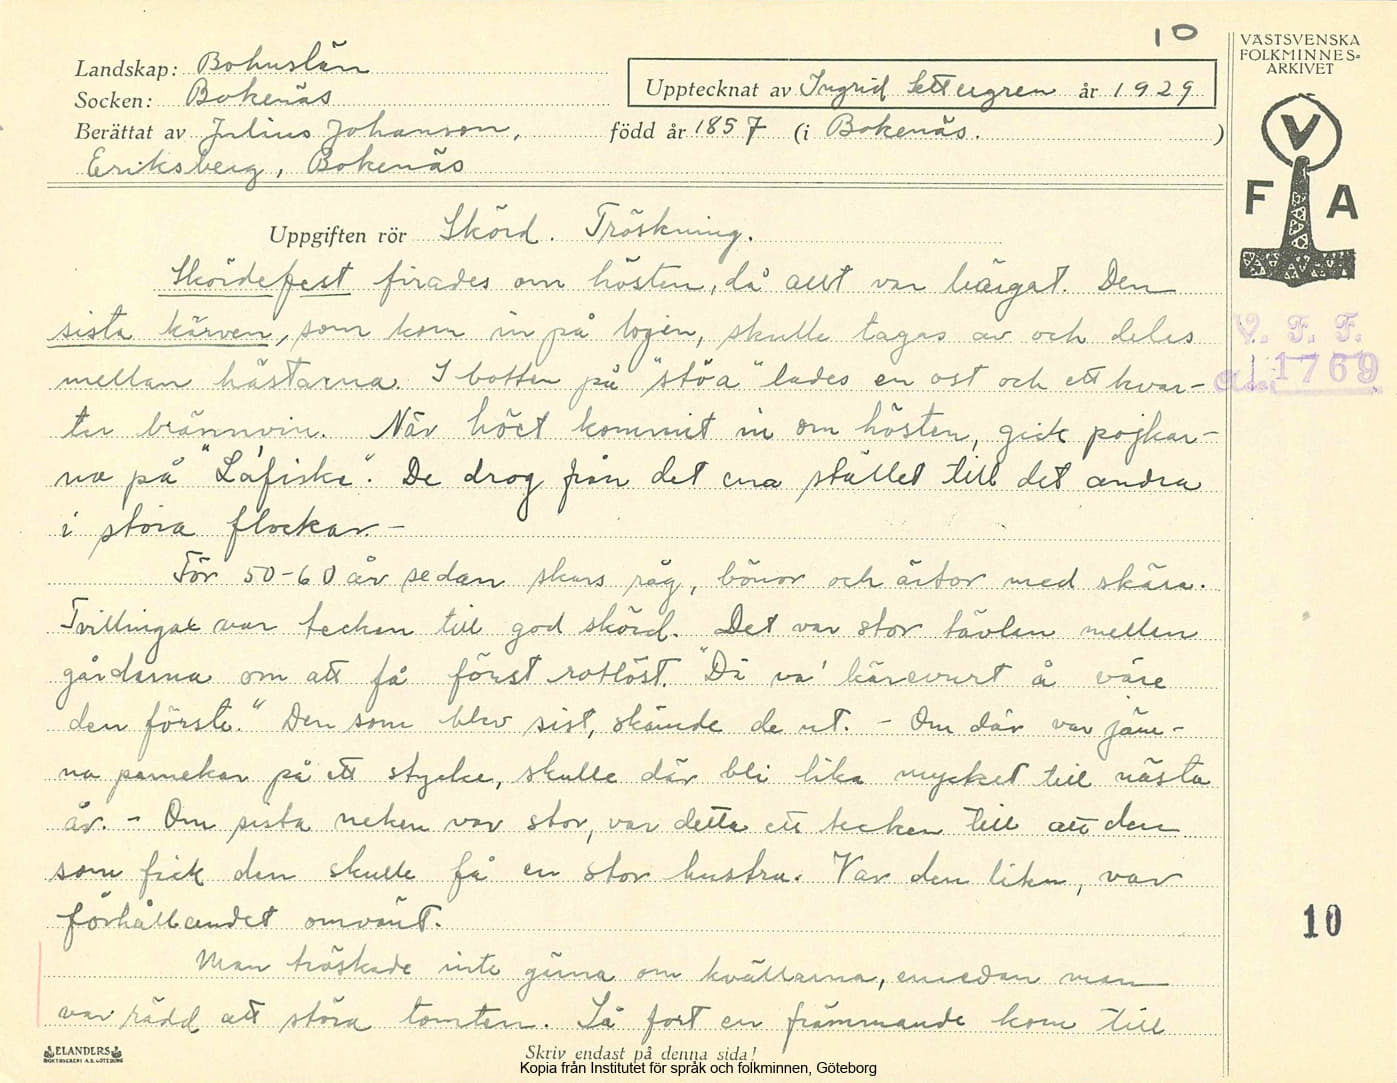 10
VÄSTSVENSKA
FOLKMINNES=
ARKIVET
Landskap: Bohuslän
Socken: Bokenäs
Upptecknat av Ingrid Settergren år 1929
Berättat av Julius Johanson, född år 1857 (i Bokenäs. )
Eriksberg, Bokenäs
V
F A
Uppgiften rör Skörd. Tröskning.
Skördefest firades om hösten, då allt var bärgat. Den
sista kärven, som kom in på logen, skulle tagas av och delas
mellan hästarna. I botten på "stöa" lades en ost och ett kvar-
ter brännvin. När höet kommit in om hösten, gick pojkar-
na på "Låfiske". De drog från det ena stället till det andra
i stora flockar. -
V. F. F.
1769
För 50-60 år sedan skars råg, bönor och ärtor med skära.
Tvillingax var tecken till god skörd. Det var stor tävlan mellan
gårdarna om att få först rotlöst. "Dä va' bärevurt å väre
den förste." Den som blev sist, skämde de ut. - Om där var jäm-
na parnekar på ett stycke, skulle där bli lika mycket till nästa
år. - Om sista neken var stor, var detta ett tecken till att den
som fick den skulle få en stor hustru. Var den liten, var
förhållandet omvänt.
10
Man tröskade inte gärna om kvällarna, emedan man
var rädd att störa tomten. Så fort en främmande kom till
ELANDERS
BOKTRYCKERI A.B. GÖTEBORG
Skriv endast på denna sida!
Kopia från Institutet för språk och folkminnen, Göteborg